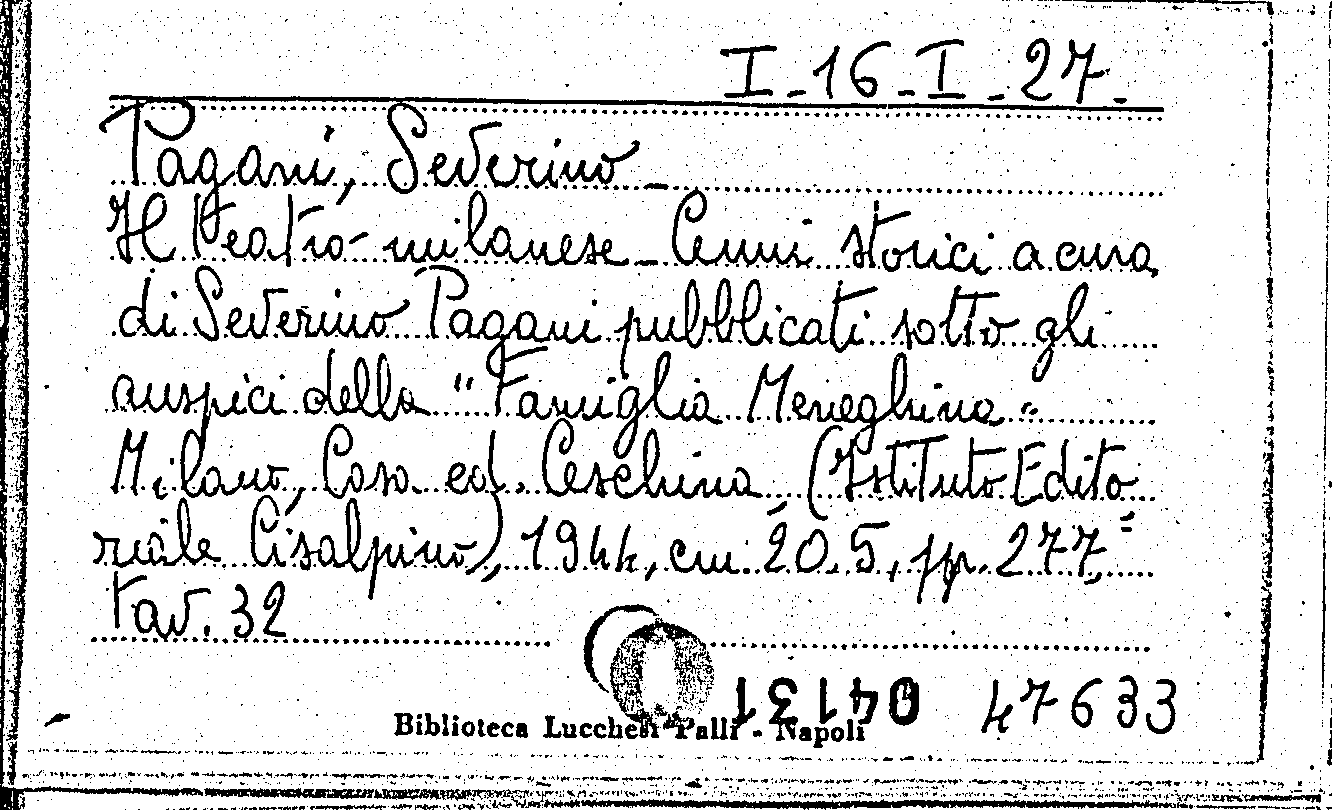 I-16-I-27-
Pagani, Severino -
Il teatro milanese - Cenni storici a cura
di Severino Pagani pubblicati sotto gli
auspici della "Famiglia Meneghina"
Milano, Casa ed. Ceschina, (Istituto Edito=
riale Cisalpino), 1944, cm. 20.5, pp. 277,
tav. 32
04131 47633
Biblioteca Lucchesi Palli - Napoli